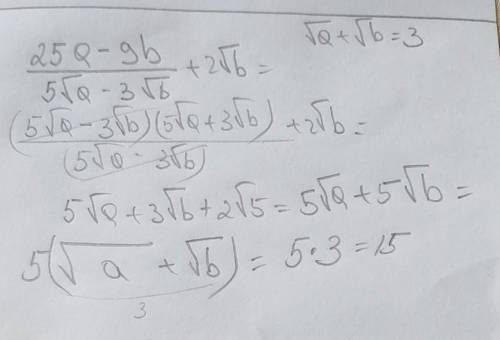 √a + √b = 3
25a - 9b / 5√a - 3√b + 2√b =
(5√a - 3√b)(5√a + 3√b) / (5√a - 3√b) + 2√b =
5√a + 3√b + 2√5 = 5√a + 5√b =
5(√a + √b) = 5·3 = 15
3